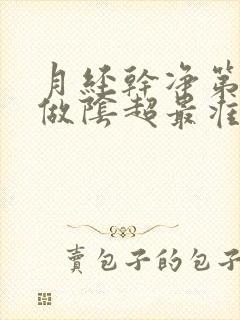 月经幹净第
做陰超最准
賣包子的包子